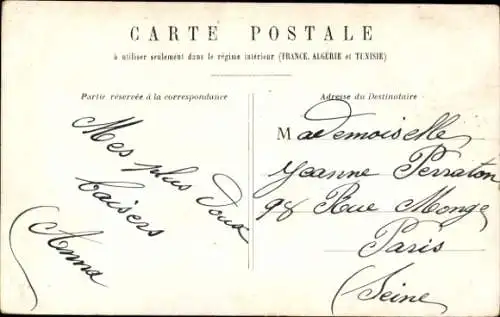 CARTE POSTALE
à utiliser seulement dans le régime intérieur (FRANCE, ALGÉRIE et TUNISIE)
Partie réservée à la correspondance
Mes plus doux
baisers
Anna
Adresse du Destinataire
Mademoiselle
Jeanne Perraton
98 Rue Monge
Paris
(Seine)